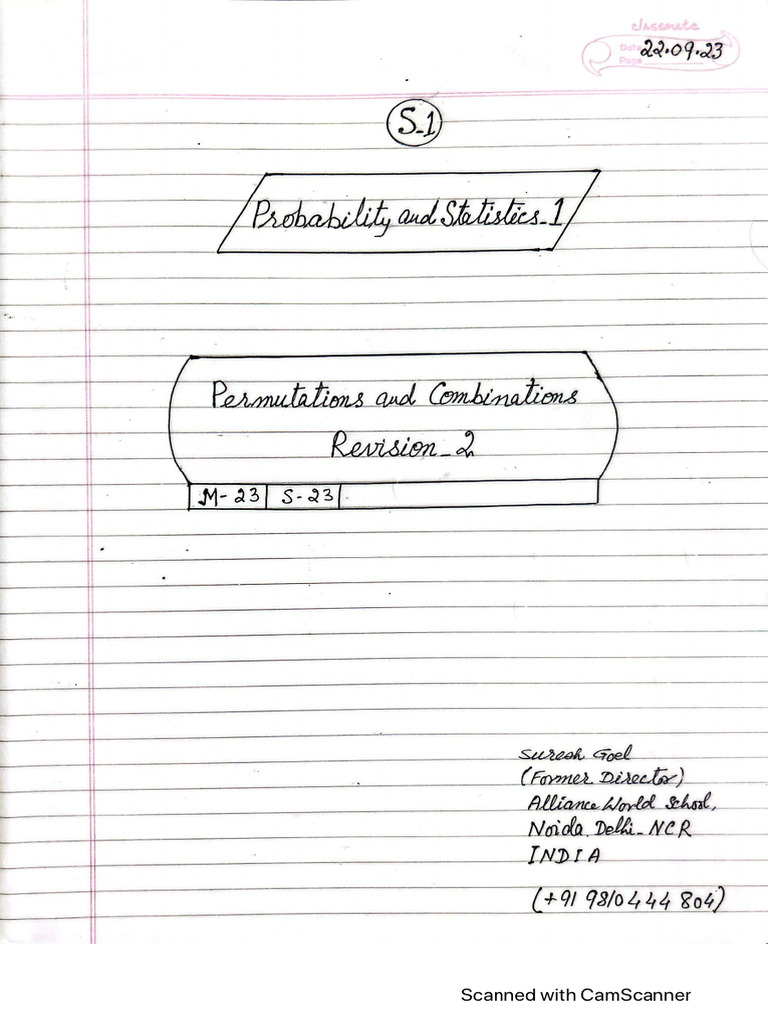 classmate
Date 22.09.23
Page
S-1
Probability and Statistics-1
Permutations and Combinations
Revision-2
M-23 S-23
Suresh Goel
(Former Director)
Alliance World School,
Noida, Delhi-NCR
INDIA
(+91 9810444 804)
Scanned with CamScanner